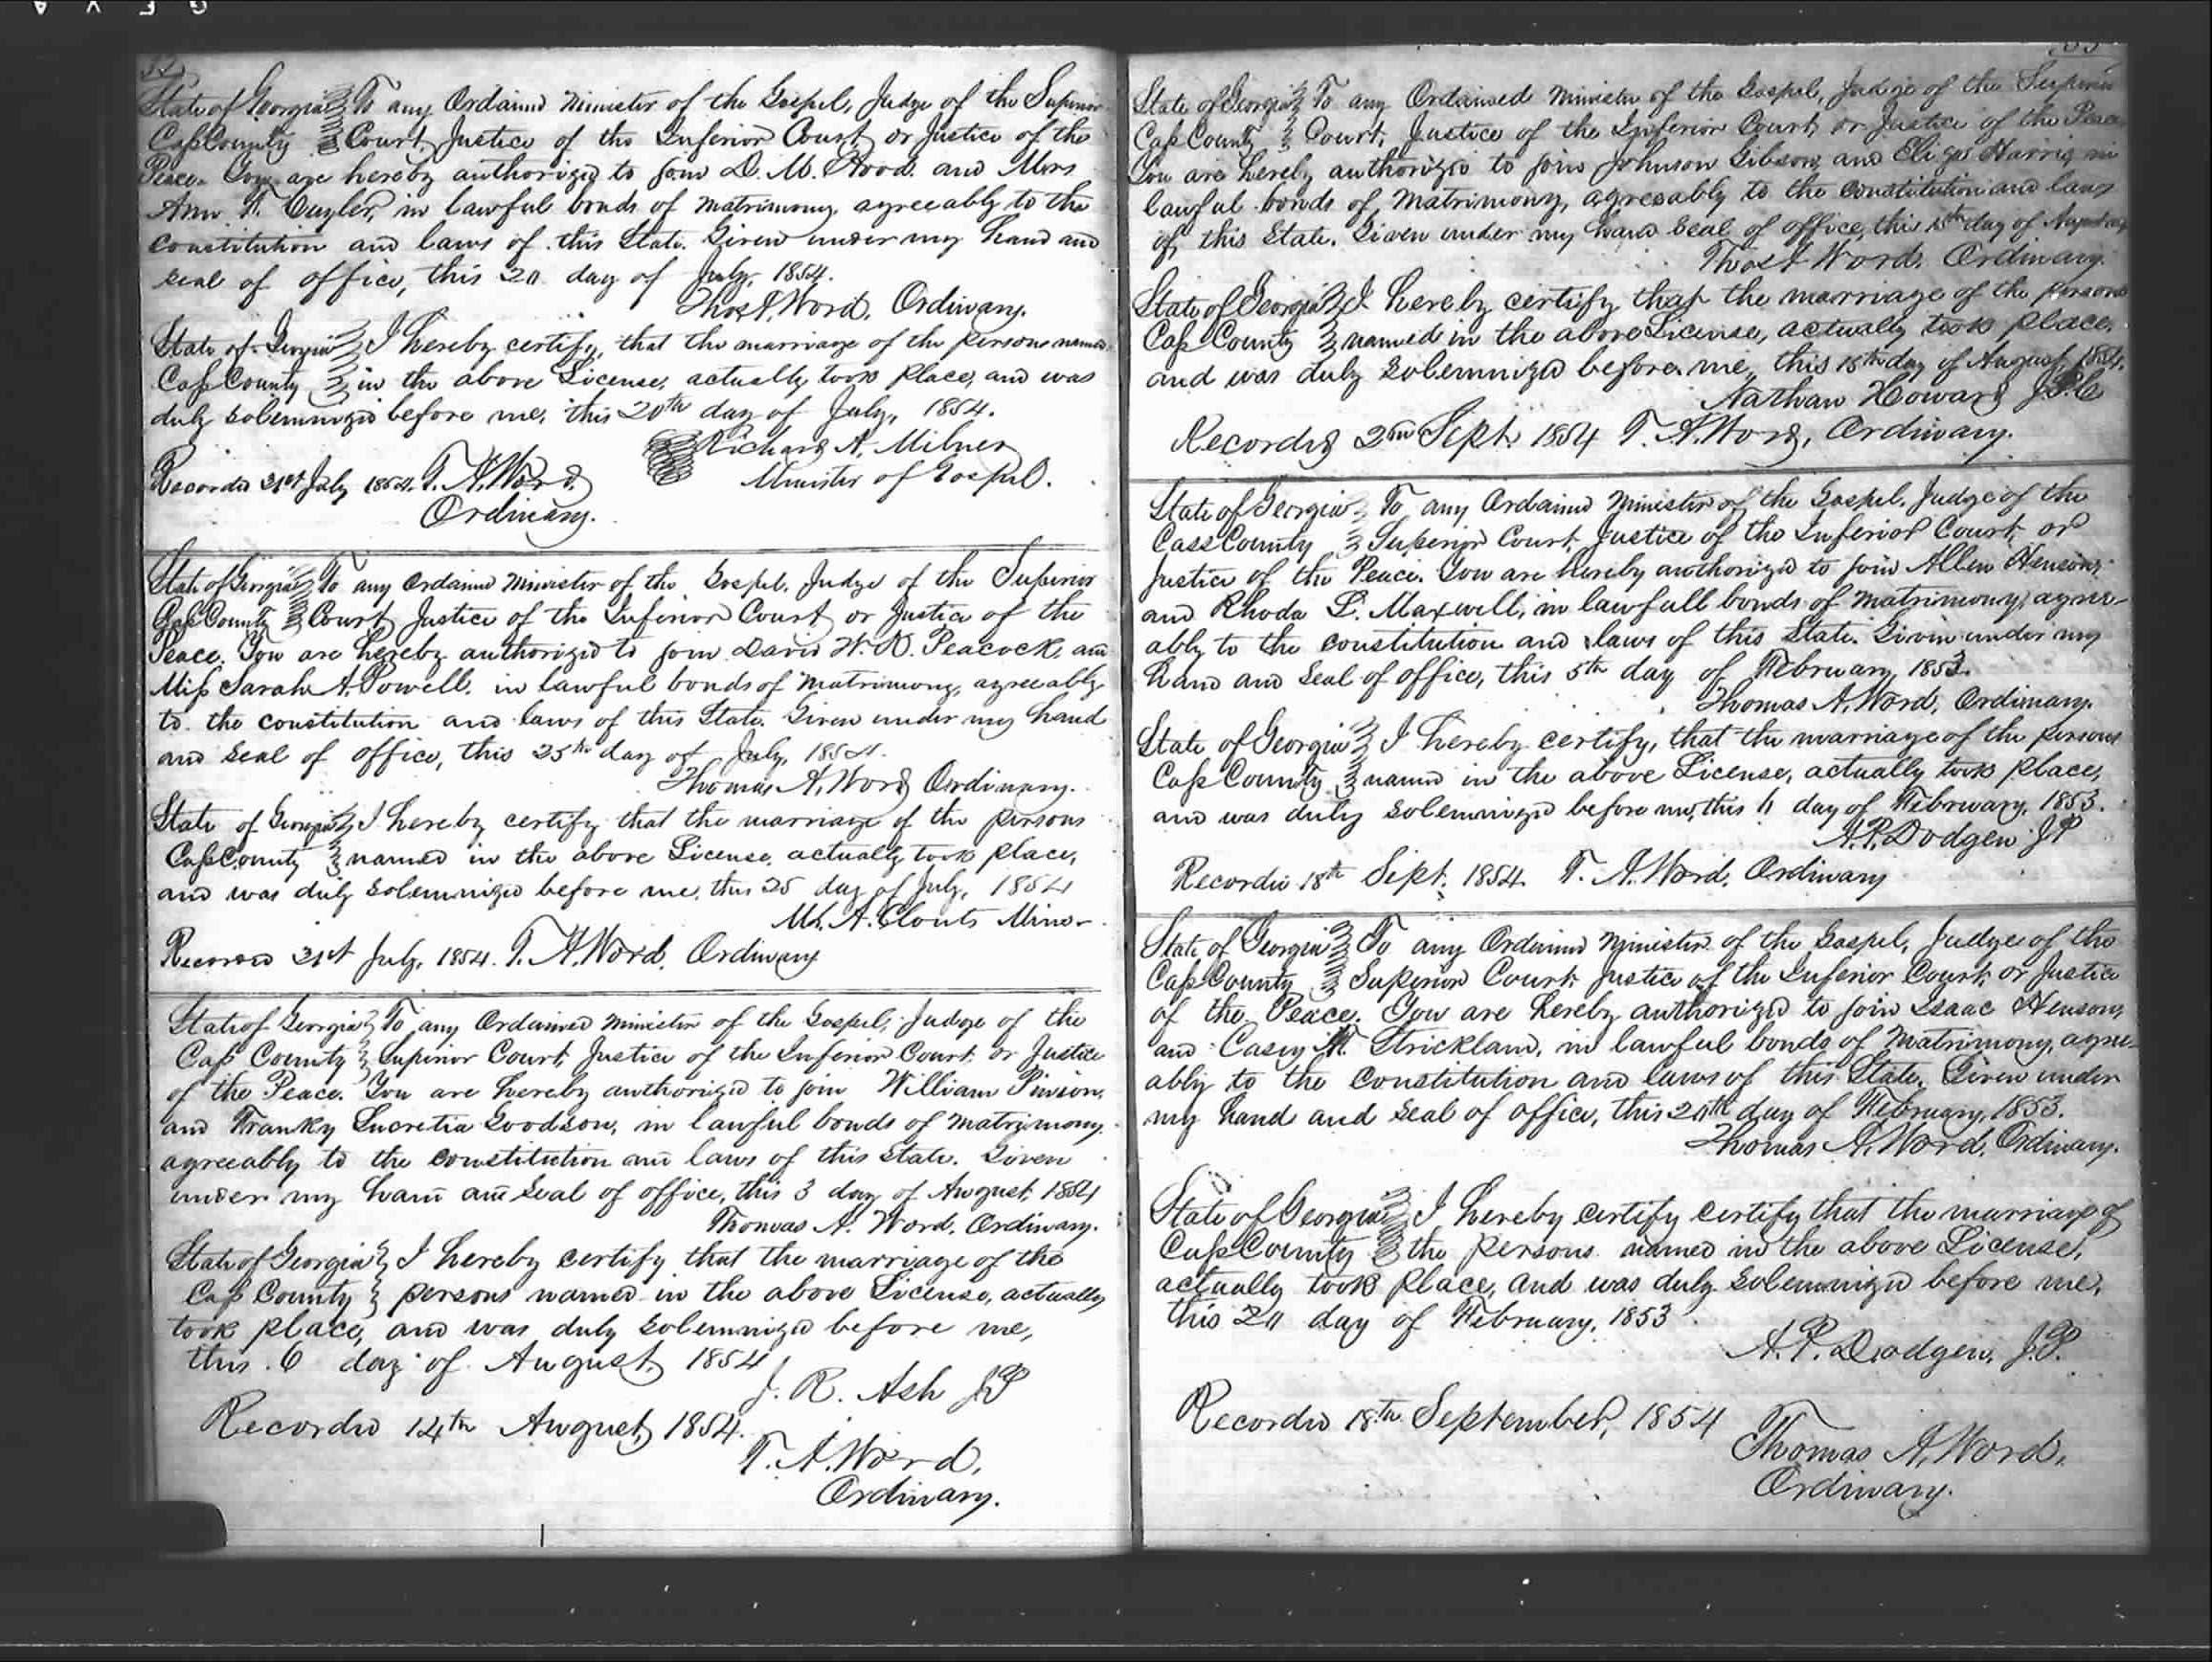 State of Georgia To any Ordained Minister of the Gospel, Judge of the Superior
Cass County Court, Justice of the Inferior Court, or Justice of the
Peace. You are hereby authorized to join D. M. Hood and Mrs
Ann F. Cuyler, in lawful bonds of matrimony, agreeably to the
constitution and laws of this State. Given under my hand and
seal of office, this 20 day of July, 1854.
Thos A. Word, Ordinary.
State of Georgia I hereby certify, that the marriage of the persons named
Cass County in the above License, actually took place, and was
duly solemnized before me, this 20th day of July, 1854.
Richard A. Milner
Minister of Gospel.
Recorded 21st July 1854. T. A. Word,
Ordinary.
State of Georgia To any Ordained Minister of the Gospel, Judge of the Superior
Cass County Court, Justice of the Inferior Court or Justice of the
Peace. You are hereby authorized to join David W. D. Peacock, and
Miss Sarah A. Powell, in lawful bonds of matrimony, agreeably
to the constitution and laws of this State. Given under my hand
and seal of office, this 25th day of July, 1854.
Thomas A. Word Ordinary.
State of Georgia I hereby certify that the marriage of the persons
Cass County named in the above License, actually took place,
and was duly solemnized before me, this 25 day of July, 1854
A. Clouts
Recorded 31st July, 1854. T. A. Word, Ordinary
State of Georgia To any Ordained Minister of the Gospel, Judge of the
Cass County Superior Court, Justice of the Inferior Court, or Justice
of the Peace. You are hereby authorized to join William Pinson,
and Franky Lucretia Goodson, in lawful bonds of matrimony.
agreeably to the constitution and laws of this State. Given
under my hand and seal of office, this 3 day of August, 1854
Thomas A. Word, Ordinary.
State of Georgia I hereby certify that the marriage of the
Cass County persons named in the above License, actually
took place, and was duly solemnized before me,
this 6 day of August, 1854
J. R. Ash JP
Recorded 14th August, 1854.
T. A. Word,
Ordinary.
State of Georgia To any Ordained Minister of the Gospel, Judge of the Superior
Cass County Court, Justice of the Inferior Court, or Justice of the Peace,
You are hereby authorized to join Johnson Gibson, and Eliza Harris in
lawful bonds of matrimony, agreeably to the constitution and laws
of this State. Given under my hand seal of office, this 15th day of
Thos A Word, Ordinary.
State of Georgia I hereby certify that the marriage of the persons
Cass County named in the above License, actually took place,
and was duly solemnized before me, this 15th day of August, 1854.
Nathan Howard
Recorded 2nd Sept. 1854 T. A. Word, Ordinary.
State of Georgia To any Ordained Minister of the Gospel, Judge of the
Cass County Superior Court, Justice of the Inferior Court, or
Justice of the Peace. You are hereby authorized to join Allen Henson,
and Rhoda L. Maxwell, in lawfull bonds of matrimony, agree-
ably to the constitution and laws of this State. Givin under my
hand and seal of office, this 5th day of February, 1853.
Thomas A. Word, Ordinary.
State of Georgia I hereby certify, that the marriage of the persons
Cass County named in the above License, actually took place,
and was duly solemnized before me, this day of February, 1853.
A. P. Dodgen JP
Recorded 18th Sept. 1854. T. A. Word, Ordinary
State of Georgia To any Ordained Minister of the Gospel, Judge of the
Cass County Superior Court, Justice of the Inferior Court, or Justice
of the Peace. You are hereby authorized to join Isaac Henson,
and Casey M. Strickland, in lawful bonds of matrimony, agree-
ably to the constitution and laws of this State. Given under
my hand and seal of office, this 20th day of February, 1853.
Thomas A. Word, Ordinary.
State of Georgia I hereby certify certify that the marriage of
Cass County the persons named in the above License,
actually took place, and was duly solemnized before me,
this 20 day of February, 1853.
A. P. Dodgen, J.P.
Recorded 18th September, 1854
Thomas A. Word,
Ordinary.